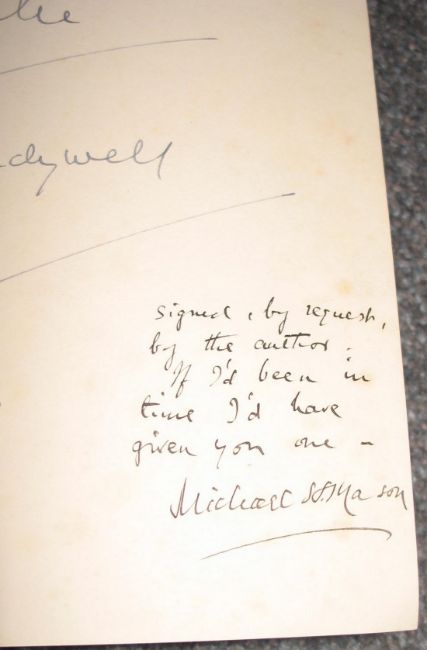 signed, by request,
by the author.
If I'd been in
time I'd have
given you one –
Michael H. Mason